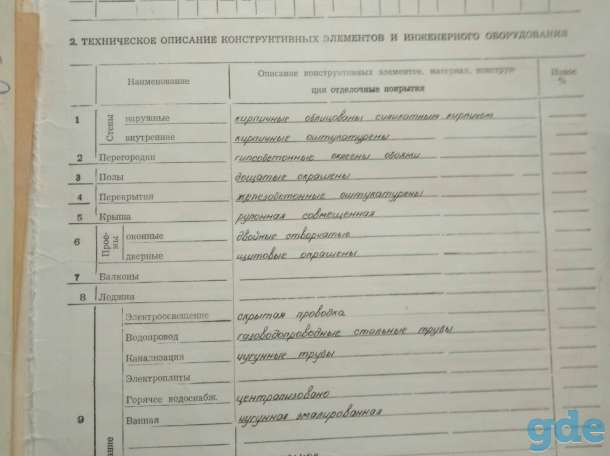 2. ТЕХНИЧЕСКОЕ ОПИСАНИЕ КОНСТРУКТИВНЫХ ЭЛЕМЕНТОВ И ИНЖЕНЕРНОГО ОБОРУДОВАНИЯ
Наименование
Описание конструктивных элементов, материал, конструк-
ция отделочные покрытия
Износ
%
1
Стены
наружные
кирпичные облицованы силикатным кирпичом
внутренние
кирпичные оштукатурены
2 Перегородки
гипсобетонные оклеены обоями
3 Полы
дощатые окрашены
4 Перекрытия
железобетонные оштукатурены
5 Крыша
рулонная совмещенная
6
Прое-
мы
оконные
двойные створчатые
дверные
щитовые окрашены
7 Балконы
8 Лоджии
Электроосвещение
скрытая проводка
Водопровод
газоводопроводные стальные трубы
Канализация
чугунные трубы
Электроплиты
Горячее водоснабж.
централизовано
9
Ванная
чугунная эмалированная
ание
gde